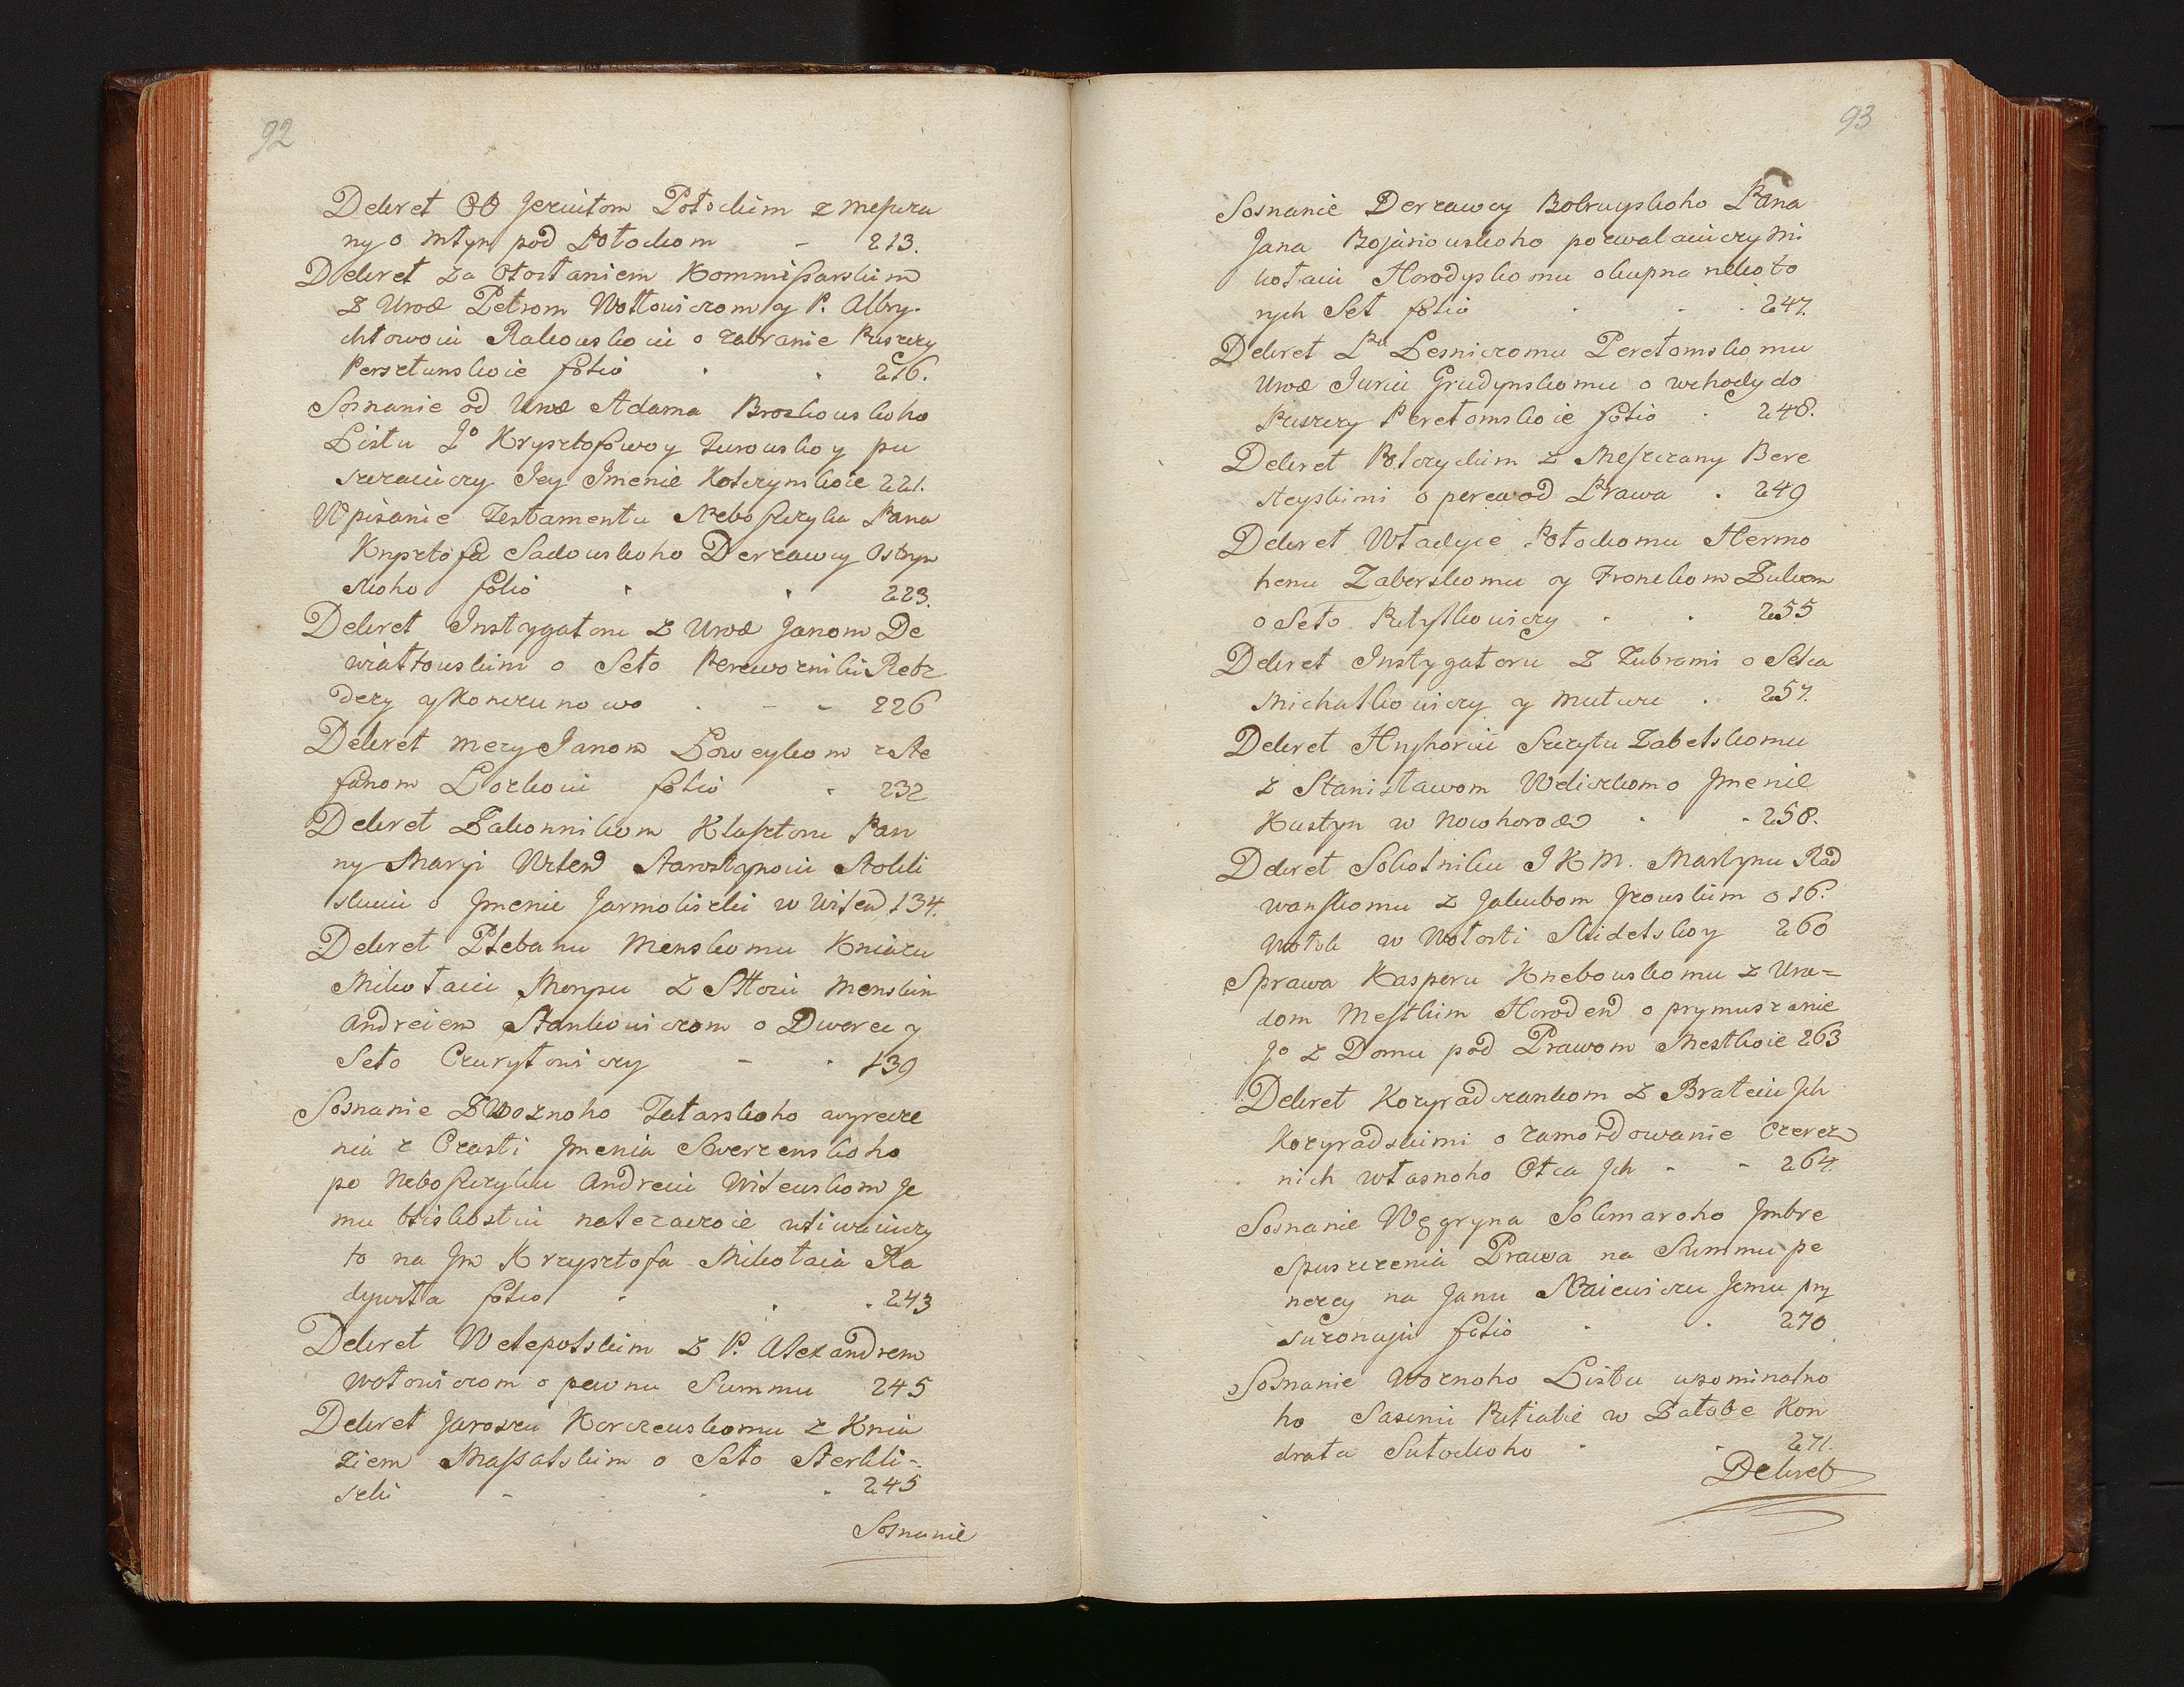 92
Dekret OO Jezuitom Połockim z Mesцza
ny o Młyn pod Połockom - 213.
Dekret za Otosłaniem Kommissarskim
z Urod Petrom Wołłowiczom y P. Albry-
chtowoiu Rakouskoiu o zabranie Puszczy
Perstunskoie folio 216.
Soznanie od Urod Adama Brozkouskoho
Listu Jo Krysztofowoy Zurouskoy pu
szczaiuczy Jey Jmenie Kotczynskoie 221.
Wpisanie Testamentu Neboszczyka Pana
Krysztofa Sadouskoho Derzawcy Ostryn
skoho folio 223.
Dekret Instygatoru z Urod Janom De
wiałtouskim o Seło Perewozniki Rebz
dezy y Konczunowo - - 226
Dekret mezy Janom Łoweykom z Ste
fanom Łozkoiu folio 232
Dekret Zakonnikom Klasztoru Pan
ny Maryi Wilend Starostynoiu Stokli
skuiu o Jmenie Jarmoliszki w Wilend 134.
Dekret Plebanu Menskomu Kniazu
Mikołaiu Monpu z Sttoiu Menskim
Andreiem Stankowiczom o Dworec y
Seło Czurytowiczy - 139
Soznanie Woznoho Tatarskoho wyrecze
nia z Czasti Jmenia Swerzenskoho
po Neboszczyku Andreiu Witeuskom Je
mu bliskostiu nalezaczoie wliwaiuczy
to na Jm Krzysztofa Mikołaia Ra
dywiła folio 243
Dekret Wełepolskim z P. Alexandrem
Wołowiczom o pewnu Summu 245
Dekret Jaroszu Korczeuskomu z Knia
ziem Massalskim o Seło Sterkli-
szki - - 245
Soznanie
93
Soznanie Derzawcy Bobruyskoho Pana
Jana Bojanouskoho pozwalaiuczy Mi
kołaiu Horodyskomu okupna nekoto
rych Seł folio 247.
Dekret Pu Lesniczomu Perełomskomu
Urod Juriu Grudynskomu o wchody do
Puszczy Perełomskoie folio 248.
Dekret Potczyckim z Meszczany Bere
steyskimi o perewod Prawa 249
Dekret Władyce Połockomu Hermo
henu Zaberskomu y Fronckom Zukom
o Seło Putyłkowiczy 255
Dekret Instygatoru z Zubrami o Selca
Michałkowiczy y Mutwu 257.
Dekret Hryhoriu Szczytu Zabelskomu
z Stanisławom Weliczkom o Jmenie
Kustyn w Nowohorod 258.
Dekret Sokolniku JKM. Martynu Rad
wanskomu z Jakubom Jrouskim o 16.
Wołok w Wołosti Skidelskoy 260
Sprawa Kasperu Knebouskomu z Ura=
dom Mestkim Horodend o prymuszenie
Jo z Domu pod Prawom Mestkoie 263
Dekret Kozyradczankom z Brateiu Jch
Kozyradskimi o zamordowanie Czerez
nich własnoho Otca Jch - - 264.
Soznanie Węgryna Solimaroho Jmbre
spuszczenia Prawa na Summu pe
nezey na Janu Nziewiczu Jemu pry
sużonuju folio 270
Soznanie Woznoho Listu upominalno
ho Saseniu Putiatie w Załobe Kon
drata Sutockoho 271.
Dekret